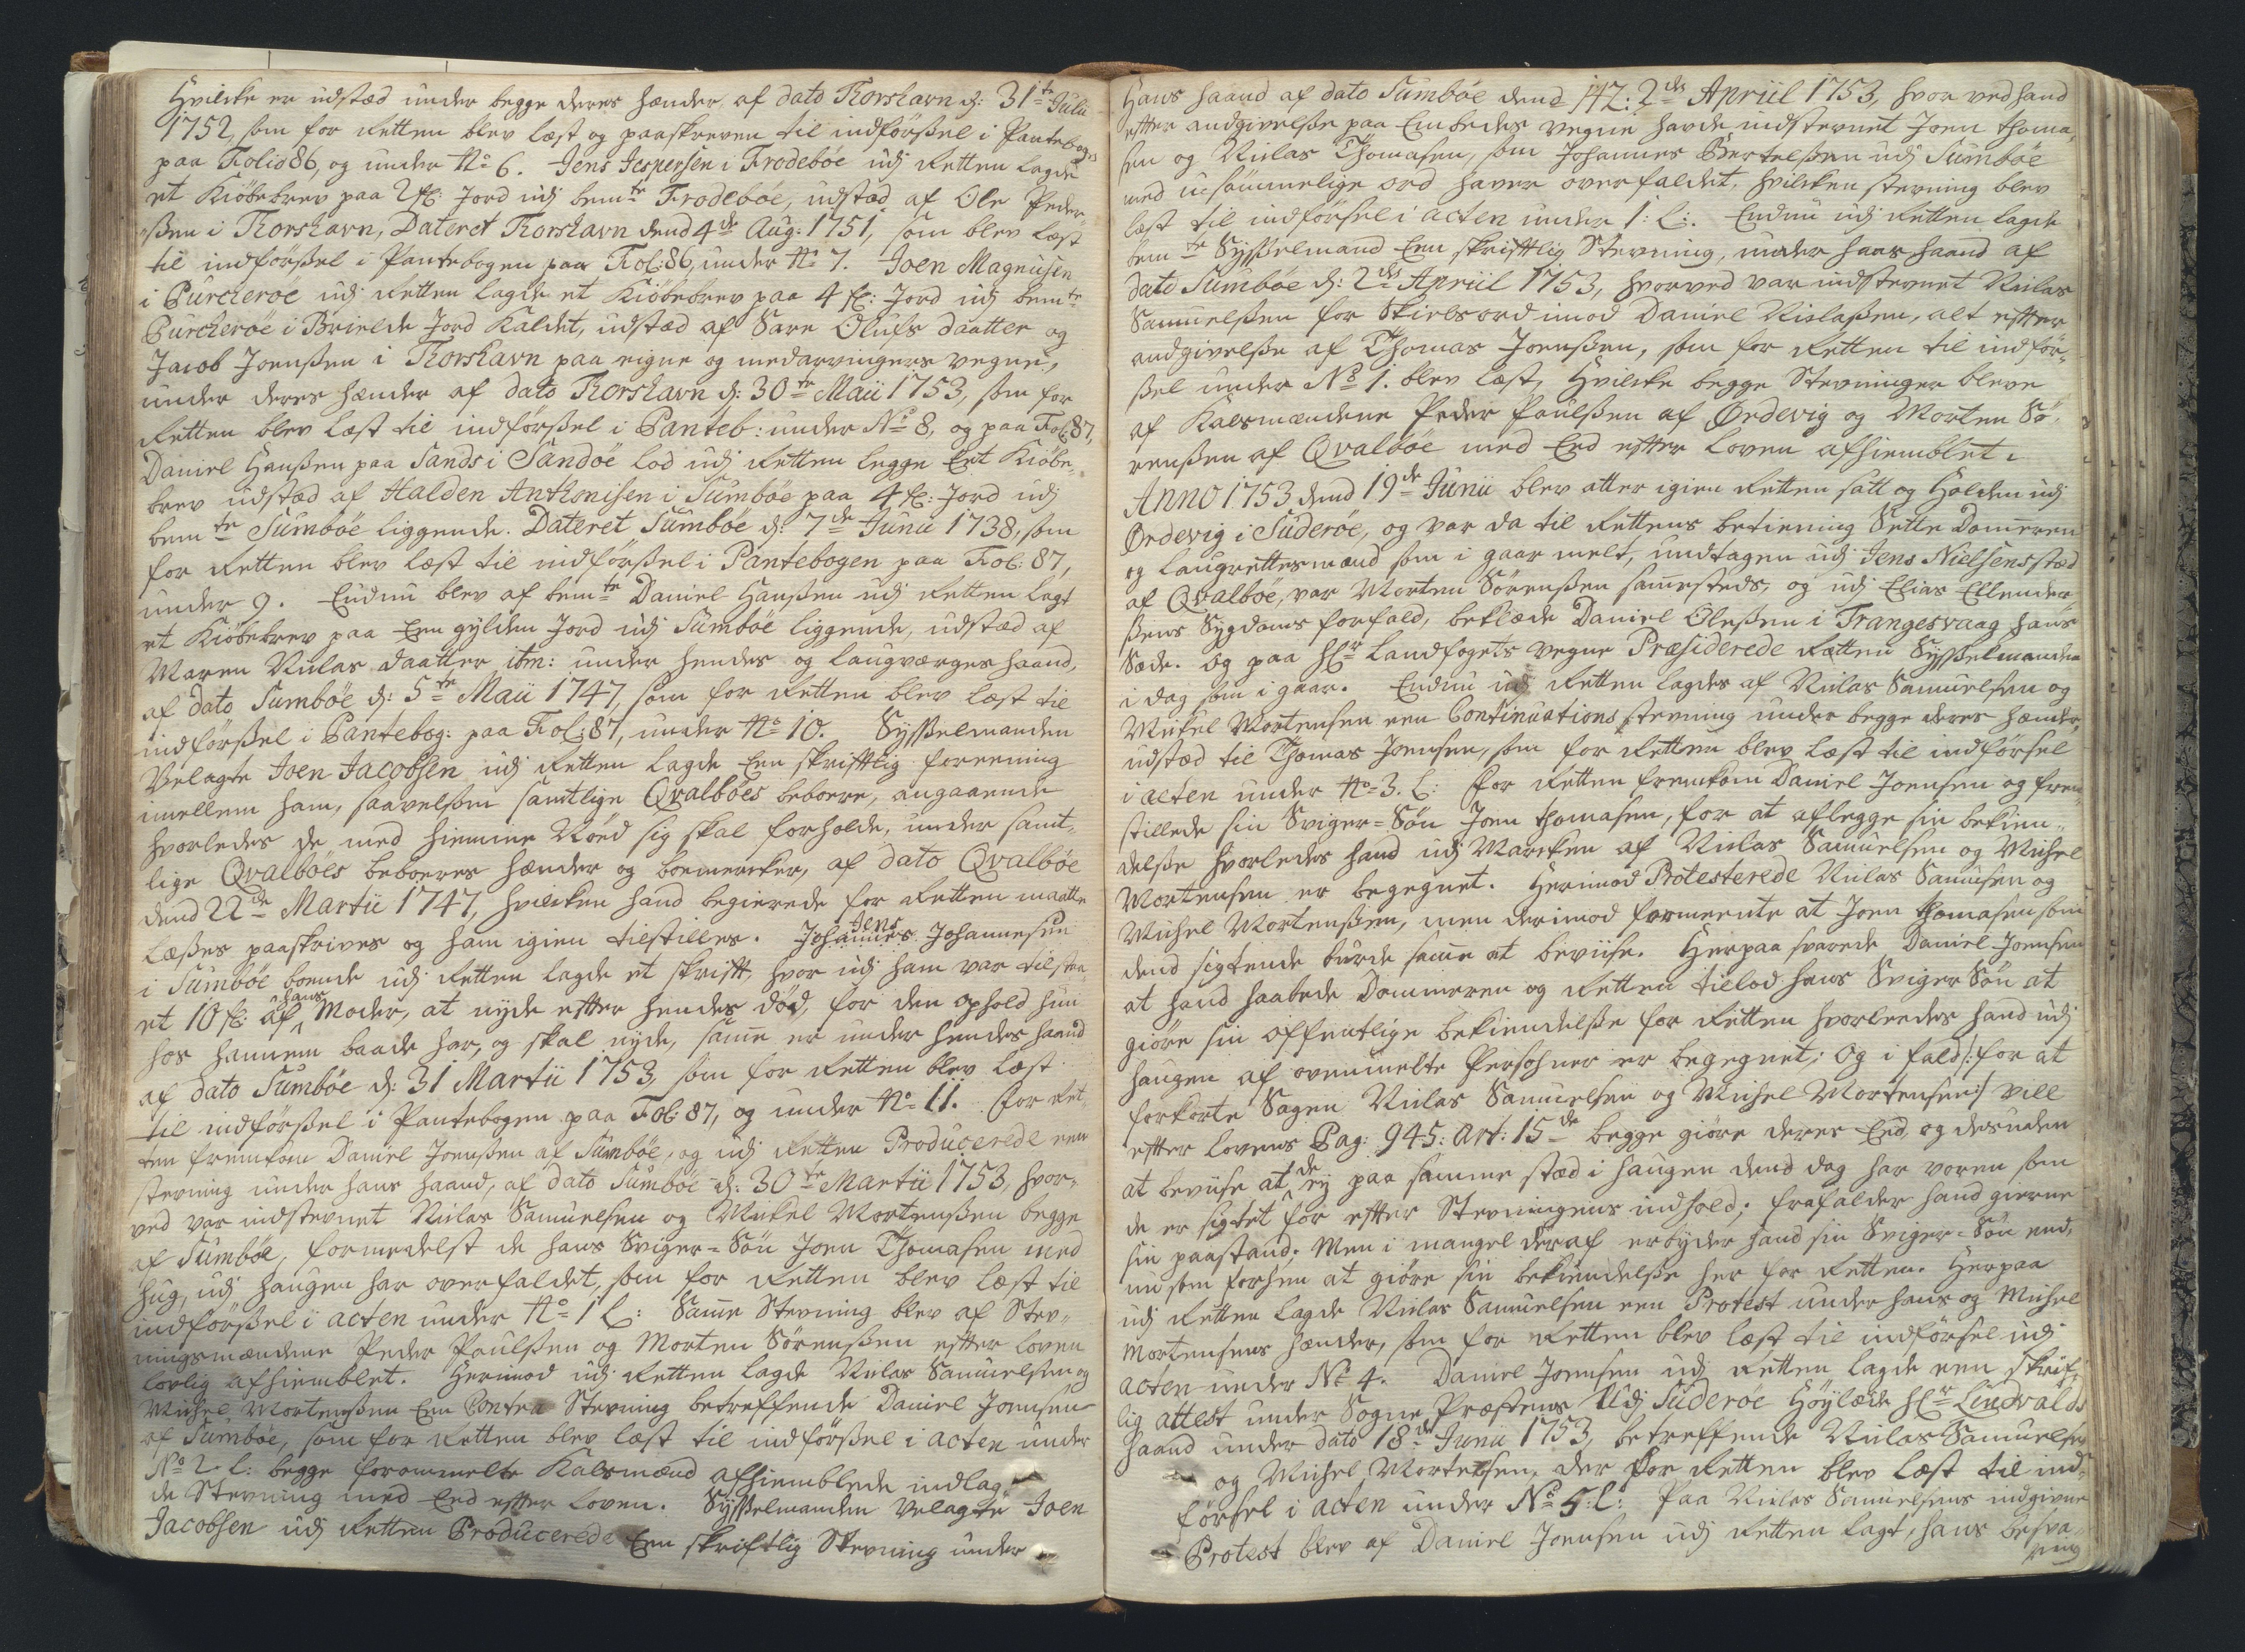 Hvilcke er udstæd under begge deres hænder af dato Thorshavn d: 31te Julii
1752, som for Retten blev læst og paaskreven til indførßel i Pantebogen
paa Folio 86, og under No 6. Jens Jespersen i Frodebøe udj Retten lagde
et Kiöbebrev paa 2 fl: Jord udj bemte Frodebøe, udstæd af Ole Peder-
ßen i Thorshavn, Dateret Thorshavn dend 4de Aug: 1751, som blev læst
til indførßel i Pantebogen paa Fol: 86, under No 7. Joen Magnusen
i Purckeroe udj Retten lagde et Kiöbebrev paa 4 fl: Jord udj bemte
Purckeröe i Brielde Jord Kaldet, udstæd af Sare Olufs daatter og
Jacob Joenßen i Thorshavn paa eigne og medarvingers vegne,
under deres hænder af dato Thorshavn d: 30te Maii 1753, som for
Retten blev læst til indførßel i Panteb: under No 8, og paa Fol: 87,
Daniel Hanßen paa Sands i Sandöe lod udj Retten legge Eet Kiöbe-
brev udstæd af Halden Anthonisen i Sumböe paa 4 fl: Jord udj
bemte Sumböe liggende. Dateret Sumböe d: 7de Junii 1738, som
for Retten blev læst til indførßel i Pantebogen paa Fol: 87,
under 9. Endnu blev af bemte Daniel Hanßen udj Retten lagt
et Kiöbebrev paa Een gylden Jord udj Sumböe liggende, udstæd af
Maren Niclas daatter itm: under hendes og laugværges haand,
af dato Sumböe d: 5te Maii 1747, som for Retten blev læst til
indførßel i Pantebog: paa Fol: 87, under No 10. Sysselmanden
Velagte Joen Jacobsen udj Retten lagde Een skrifftlig foreening
imellem ham, saavelsom samtlige Qvalböes beboere, angaaende
hvorledes de med hiemme Nöed sig skal forholde, under samt-
lige Qvalböes beboeres hænder og boemercker, af dato Qvalböe
dend 22de Martii 1747, hvilcken hand begierede for Retten maatte
læßes paaskrives og ham igien tilstilles. Johannes Jens Johannesen
i Sumböe boende udj Retten lagde et skrifft, hvor udj ham var tilstaa-
et 10 fl: af hans Moder, at nyde effter hendes död, for den ophold hun
hos hannem baade har, og skal nyde, samme er under hendes haand
af dato Sumböe d: 31 Martii 1753, som for Retten blev læst
til indførßel i Pantebogen paa Fol: 87, og under No 11. For Ret-
ten fremkom Daniel Joenßen af Sumböe, og udj Retten Producerede een
stevning under hans haand, af dato Sumböe d: 30te Martii 1753, hvor-
ved var indstevnet Niclas Samuelsen og Mickel Mortenßen begge
af Sumböe, formedelst de hans Sviger-Sön Joen Thomasen med
hug, udj haugen har overfaldet, som for Retten blev læst til
indførßel i acten under No 1 L: Samme Stevning blev af Stev-
ningsmændene Peder Poulsen og Morten Sörensßen effter loven
lovlig afhiemblet. Herimod udj Retten lagde Niclas Samuelsen og
Michel Mortenßen Een Contra Stevning betreffende Daniel Joensen
af Sumböe, som for Retten blev læst til indførßel i acten under
No 2 L: begge forommelte Kalsmænd afhiemblede indlag-
de Stevning med Eed effter loven. Sysselmanden Velagte Joen
Jacobsen udj Retten Producerede Een skriftlig Stevning under
Hans haand af dato Sumböe dend 2den Apriil 1753, hvor ved hand
effter andgivelße paa Embedes vegne havde indstevnet Joen Thoma-
sen og Niclas Thomasen, som Johannes Bertelßen udj Sumböe
med usömmelige ord haver overfaldet, hvilcken stevning blev
læst til indførsel i acten under 1: L:. Endnu udj Retten lagde
bemte Sysselmand Een skrifftlig Stevning, under hans haand af
dato Sumböe d: 2den Apriil 1753, hvorved var indstevnet Niclas
Samuelßen for Skielsord imod Daniel Niclaßen, alt effter
andgivelße af Thomas Joenßen, som for Retten til indför-
ßel under No 1. blev læst, Hvilcke begge Stevninger bleve
af Kalsmændene Peder Poulßen af Ordevig og Morten Sö-
renßen af Qvalböe med Eed effter loven afhiemblet.
Anno 1753 dend 19de Junii blev atter igien Retten satt og Holden udj
Ordevig i Suderöe, og var da til Rettens betiening Sette Dommeren
og laugrettesmænd som i gaar melt, undtagen udj Jens Nielsens stæd
af Qvalböe, var Morten Sörenßen sammesteds, og udj Elias Ellender
ßens Sygdoms forfald, beklæde Daniel Oleßen i Trangesvaag hans
Sæde. og paa Hr Landfogets vegne Præsiderede Retten Sysselmanden
i dag som i gaar. Endnu udj Retten lagdes af Niclas Samuelsen og
Mickel Mortensen een Continuations stevning under begge deres hænder,
udstæd til Thomas Joensen, som for Retten blev læst til indførsel
i acten under No 3. L: For Retten fremkom Daniel Joensen og frem-
stillede sin Sviger-Sön Joen Thomasen, for at aflegge sin bekien-
delße hvorledes hand udj Marcken af Niclas Samuelsen og Michel
Mortensen er begegnet. Herimod Protesterede Niclas Samusen og
Michel Mortenßen, men derimod formeente at Joen Thomasen som
dend sigtende burde samme at beviise. Herpaa svarede Daniel Joensen
at hand haabede Dommeren og Retten tillod hans Sviger Sön at
giöre sin offentlige bekiendelße for Retten hvorledes hand udj
haugen af ovenmelte Persohner er begegnet; Og i fald /: for at
forkorte Sagen Niclas Samuelsen og Michel Mortensen :/ vill
effter lovens Pag: 945: Art: 15de begge giöre deres Eed, og desuden
at beviise at de ey paa samme stæd i haugen dend dag har voren som
de er sigtet for effter Stevningens indhold; frafalder hand gierne
sin paastand; Men i mangel deraf erbyder hand sin Sviger-Sön end-
nu som forhen at giöre sin bekiendelße her for Retten. Herpaa
udj Retten lagde Niclas Samuelsen een Protest under hans og Michel
Mortensens hænder, som for Retten blev læst til indførsel udj
acten under No 4. Daniel Joensen udj Retten lagde een skrifft-
lig attest under Sogne Præstens udj Suderöe Höylærde Hr Lindvalds
haand under dato 18de Junii 1753, betreffende Niclas Samuelsen
og Michel Mortensen, der for Retten blev læst til ind-
förßel i acten under No 5: L: Paa Niclas Samuelsens indgivne
Protest blev af Daniel Joensen udj Retten lagt, hans besva-
ring